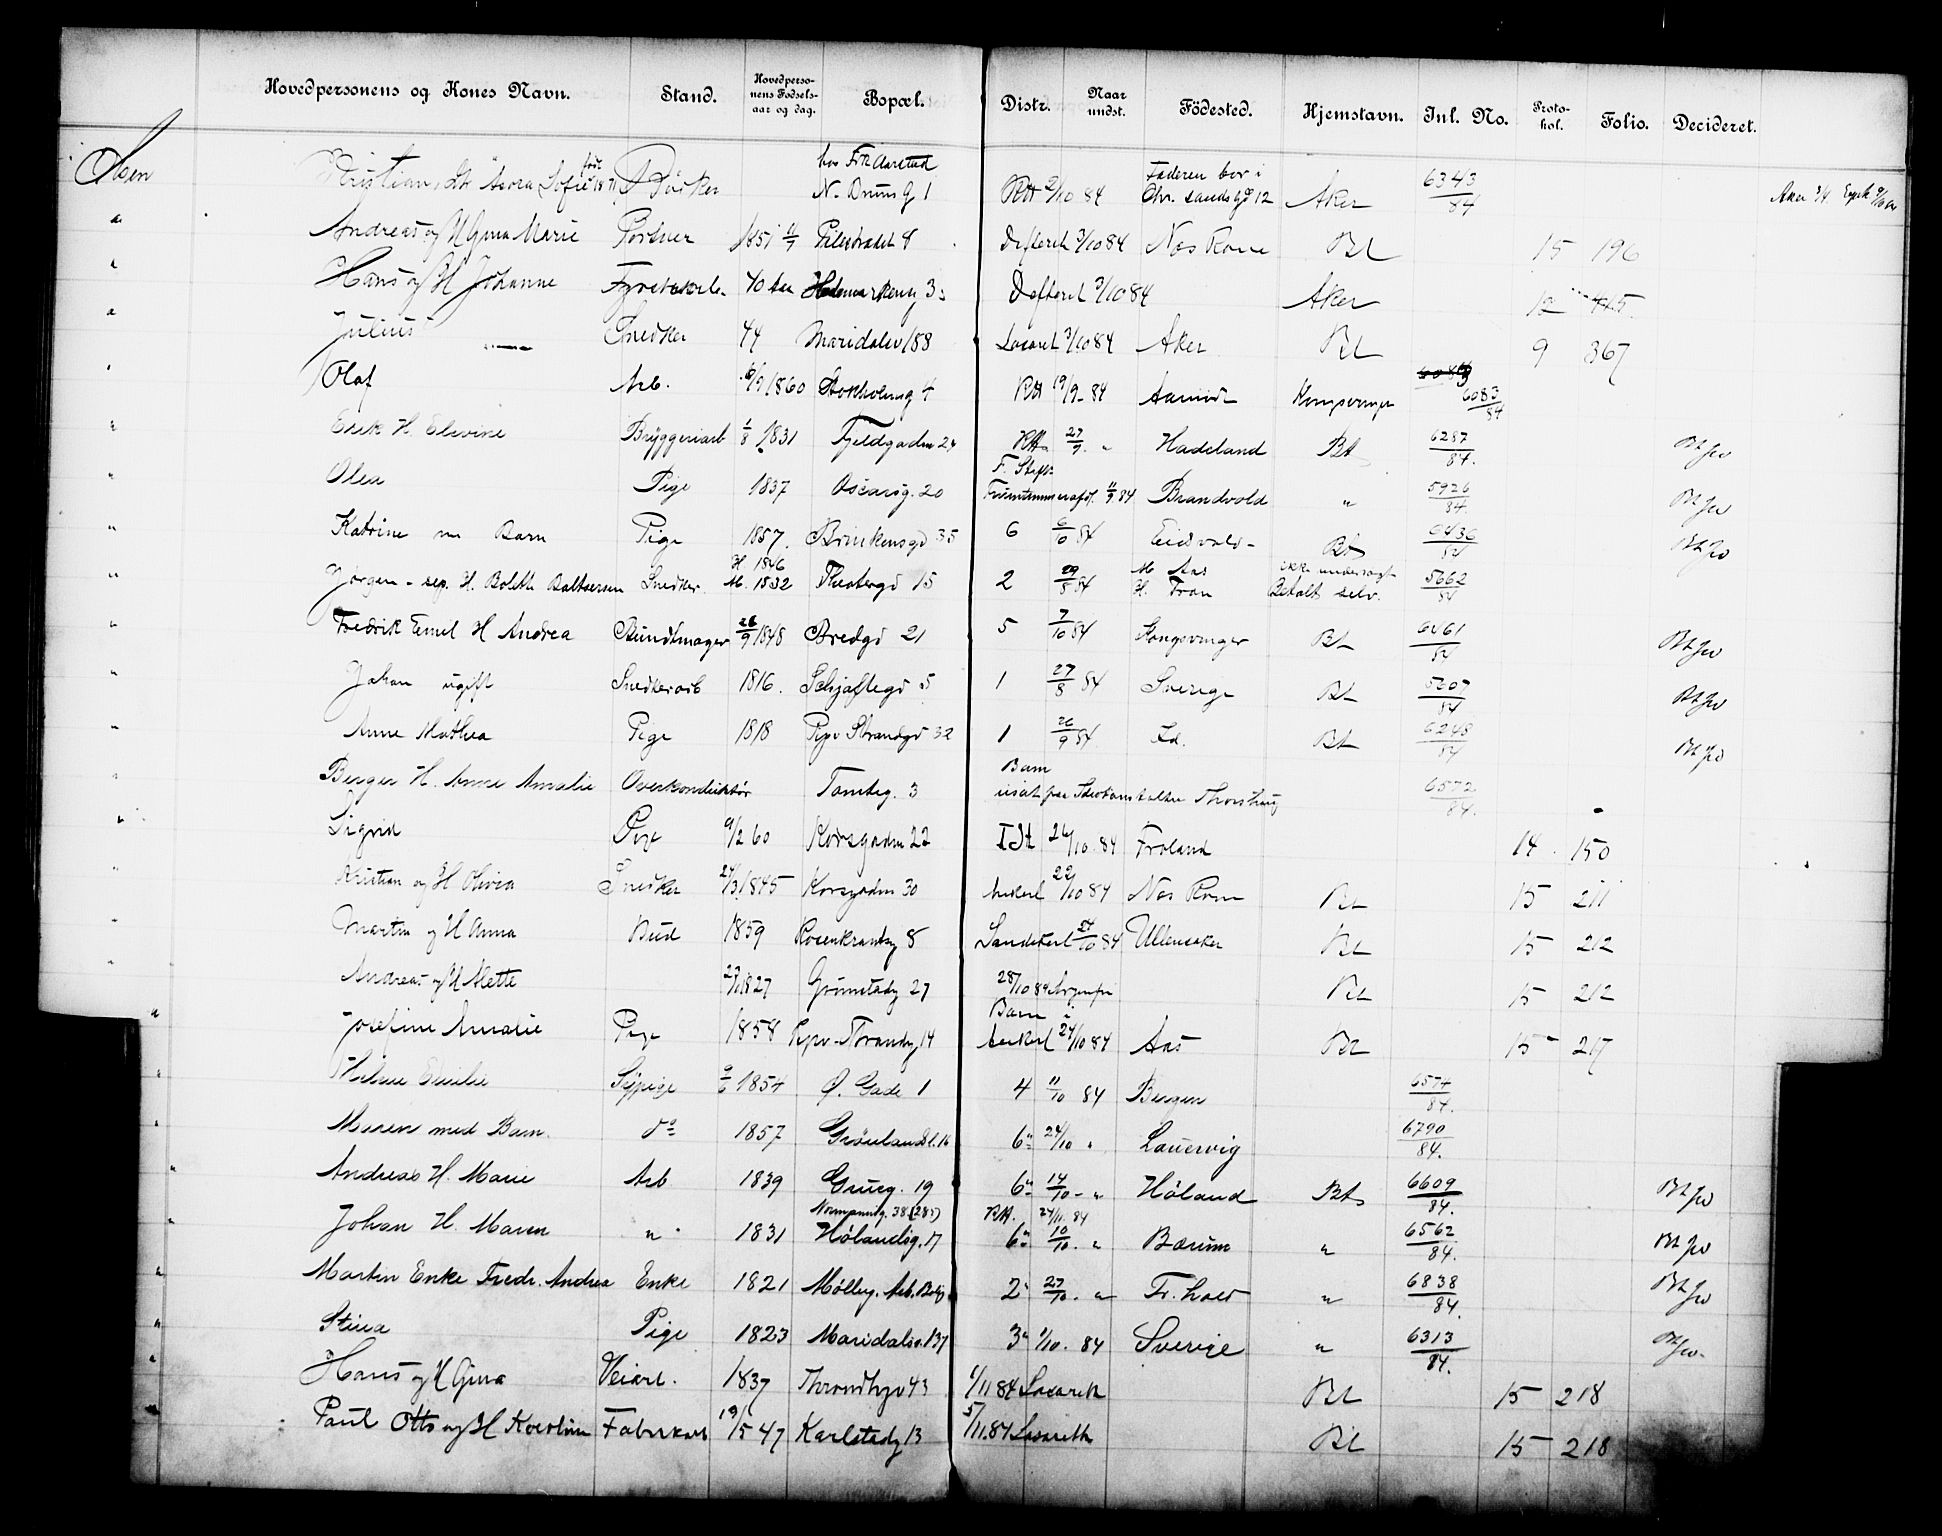 Hovedpersonens og Kones Navn. Stand. Hovedpersonens Fødselsaar og dag. Bopæl. Distr. Naar undst. Födested. Hjemstavn. Inl. No. Protokol. Folio. Decideret.
Olsen Kristian, Dtr Anna Sofie født 1871 hos Frk Aarstad N. Bruns G 1 RH 2/10 84 Faderen bor i Chr. sands Gd 12 Aker 6343/84
" Andreas og H Gina Marie Portner 1851 Pilestrædet 8 Defteret 3/10 84 Næs Rome Bt 15 196
" Hans og H Johanne 40 Aar Hedemarkens g 3 Defteret 3/10 84 Aker 12 415
" Julius Snedker 44 Maridalsv 188 Lasaret 3/10 84 Aker Bt 9 367
" Olaf Arb. 6/9 1860 Stokholmsg 4 RH 19/9 84 Kongsvinger 6083/84
" Erik H. Elevine Bryggeriarb 1/8 1831 Fjeldgaden 24 RH 27/9 " Hadeland Bt 6287/84. Bt Jw
" Olea Pige 1837 Oscarsg. 20 F. Stift. 11/9 84 Brandvold " 5926/84. Bt Jw
" Katrine m Barn Pige 1857. Brinkensgd 35 6 6/10 84 Eidsvold - Bt 6436/84 Bt Jw
" Jørgen - sep. H. Bolette Baltsersen Snedker H. 1846 M. 1832 Theatergd 15 2 29/8 84 M Aas H. Tron ikke undersøgt Betalt selv. 5662/84
" Fredrik Emil H Andrea Bundtmager 26/9 1848 Bredgd 21 5 7/10 84 Kongsvinger Bt 6461/84 Bt Jw
" Johan ugift Snedkerarb 1816. Schjøftegd 5 1 27/8 84 Sverige Bt 5207/84 Bt Jw
" Anne Mathea Pige 1818 Pipv Strandgd 32 1 26/9 84 Ed. Bt 6248/84 Bt Jw
" Berger H. Anne Amalie Overkonduktør Tomteg. 3 Barn Idiotanstalten Thorshaug 6572/84.
" Sigrid Pige 9/2 60 Korsgaden 22 Idt 26/10 84 Froland 14 150
" Kristian og H Olivia Snedker 24/3 1845 Korsgaden 30 Ankerl 22/10 84 Næs Rom Bt 15 211
" Martin og H Anna Bud 1859 Rosenkrantzg 8 24/10 84 Ullensaker Bt 15 212
" Andreas og H Mette 1827 Grimstadg 27 28/10 84 Bt 15 212
" Josefine Amalie Pige 1858 Pipv-Strandg 14 Barn i Ankerl 24/10 84 Aas Bt 15 217
" Emilie Sypige 9/6 1854 Ø. Gade 1 4 11/10 84 Bergen 6574/84.
" Maren med Barn. do 1857 Grønlandsl. 16 6 24/10 " Laurvig 6790/84.
" Andreas H. Marie Arb 1839 Grueg. 19 6 14/10 - " Høland Bt 6609/84. Bt Jw
" Johan H. Maren " 1831 Normannsg. 38 (285) Hølandsg. 17 RH. 24/11. 84 6 10/10. " Bærum " 6562/84. Bt Jw
" Martin Enke Fredr. Andrea Enke 1821 Møllerg. Arb. Bolig 2 27/10. " " 6838/84. Bt Jw
" Stina Pige 1823 Maridalsv. 137 3 1/10. 84 Sverige " 6313/84. Bt Jw.
" Hans og H Gina Veiarb. 1837 Throndhjv 43 1/11 84 Lasareth Bt 15 218
Paul Otto og H Kerstine Fabrikarb 19/5 47 Karlstadg 13 5/11. 84 Lasareth Bt 15 218